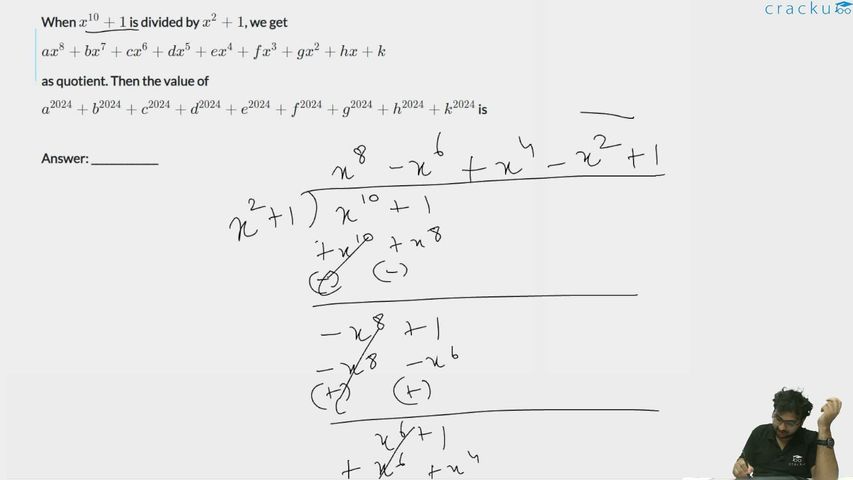 cracku
When x¹⁰ + 1 is divided by x² + 1, we get
ax⁸ + bx⁷ + cx⁶ + dx⁵ + ex⁴ + fx³ + gx² + hx + k
as quotient. Then the value of
a²⁰²⁴ + b²⁰²⁴ + c²⁰²⁴ + d²⁰²⁴ + e²⁰²⁴ + f²⁰²⁴ + g²⁰²⁴ + h²⁰²⁴ + k²⁰²⁴ is
Answer: ___________
x⁸ - x⁶ + x⁴ - x² + 1
x² + 1 ) x¹⁰ + 1
+ x¹⁰ + x⁸
(-) (-)
- x⁸ + 1
- x⁸ - x⁶
(+) (+)
x⁶ + 1
+ x⁶ + x⁴